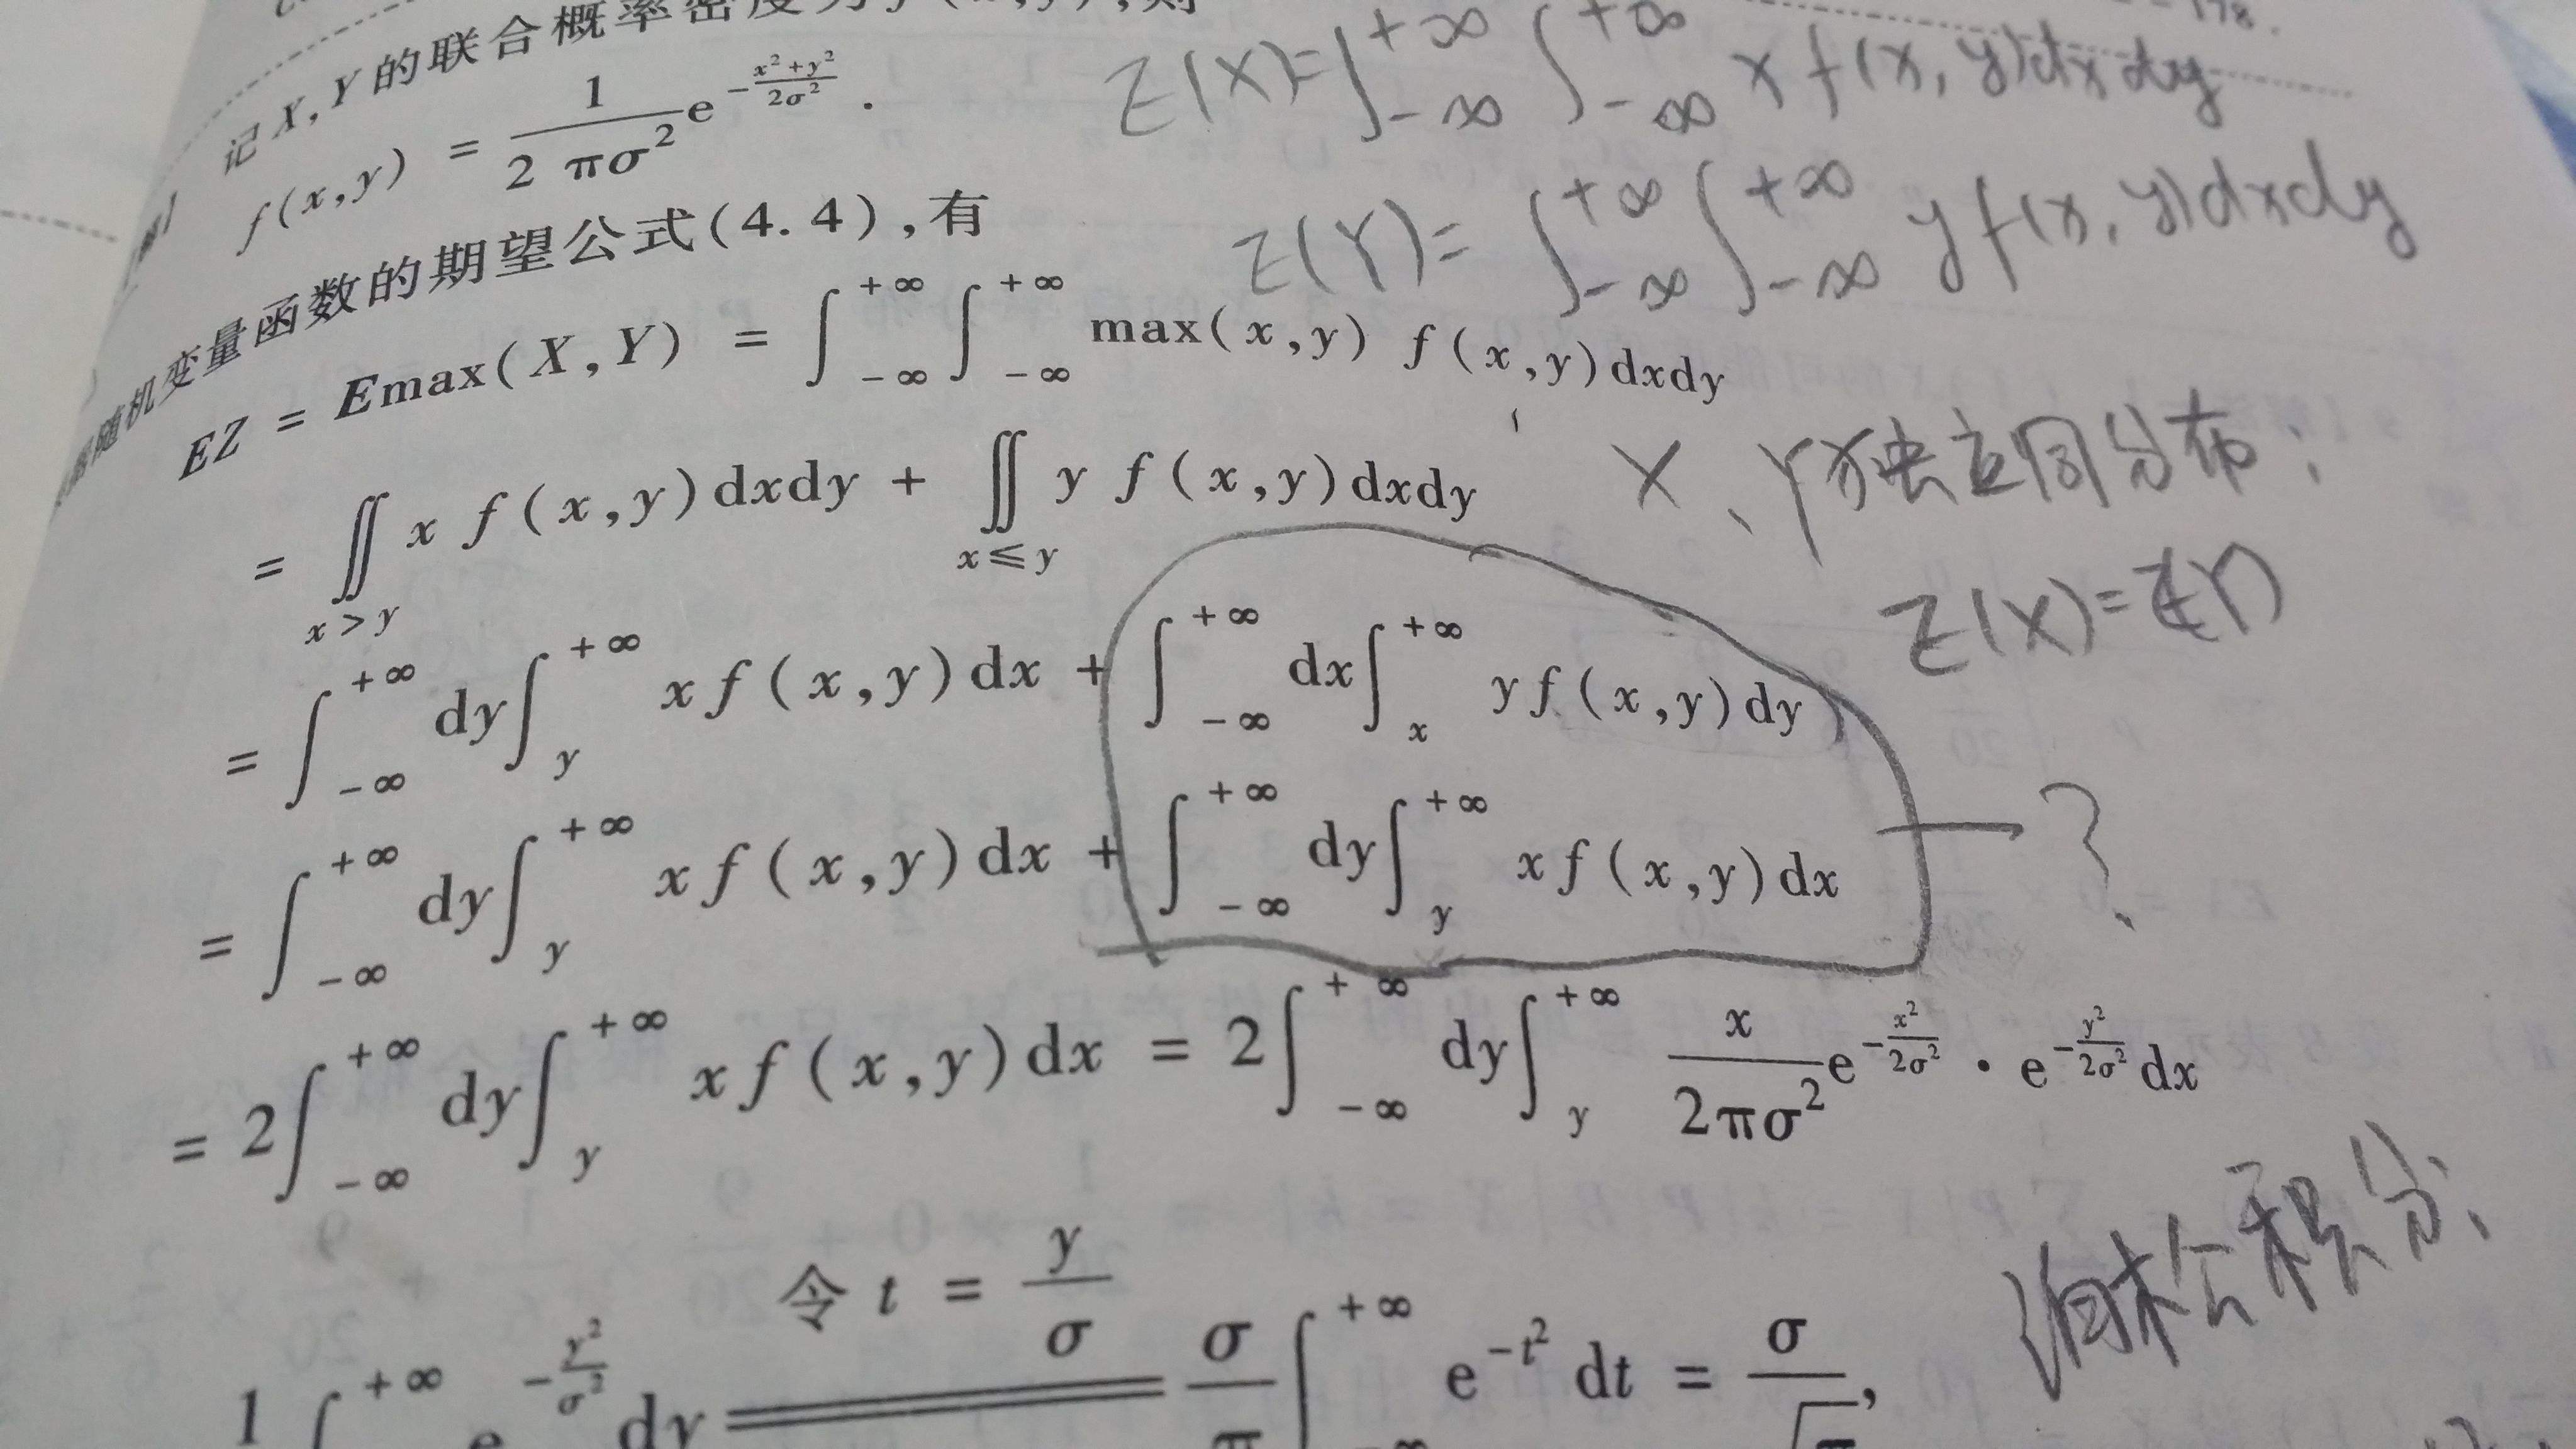 记 X,Y 的联合概率密度为 f(x,y),则
f(x,y) = \frac{1}{2πσ^2} e^{-\frac{x^2+y^2}{2σ^2}}.
随机变量函数的期望公式(4.4),有
EZ = Emax(X,Y) = ∫_{-∞}^{+∞} ∫_{-∞}^{+∞} max(x,y) f(x,y)dxdy
= ∬_{x>y} x f(x,y)dxdy + ∬_{x≤y} y f(x,y)dxdy
= ∫_{-∞}^{+∞} dy ∫_{y}^{+∞} xf(x,y)dx + ∫_{-∞}^{+∞} dx ∫_{x}^{+∞} yf(x,y)dy
= ∫_{-∞}^{+∞} dy ∫_{y}^{+∞} xf(x,y)dx + ∫_{-∞}^{+∞} dy ∫_{y}^{+∞} xf(x,y)dx
= 2∫_{-∞}^{+∞} dy ∫_{y}^{+∞} xf(x,y)dx = 2∫_{-∞}^{+∞} dy ∫_{y}^{+∞} \frac{x}{2πσ^2} e^{-\frac{x^2}{2σ^2}} · e^{-\frac{y^2}{2σ^2}} dx
令 t = \frac{y}{σ}
∫^{+∞} e^{-\frac{y^2}{σ^2}} dy ═ \frac{σ}{π} ∫_{-∞}^{+∞} e^{-t^2} dt = \frac{σ}{\sqrt{π}},
178.
Z(X)=∫_{-∞}^{+∞} ∫_{-∞}^{+∞} x f(x,y)dxdy
Z(Y)= ∫_{-∞}^{+∞} ∫_{-∞}^{+∞} y f(x,y)dxdy
X、Y 独立同分布:
Z(X)=Z(Y)
?
泊松积分